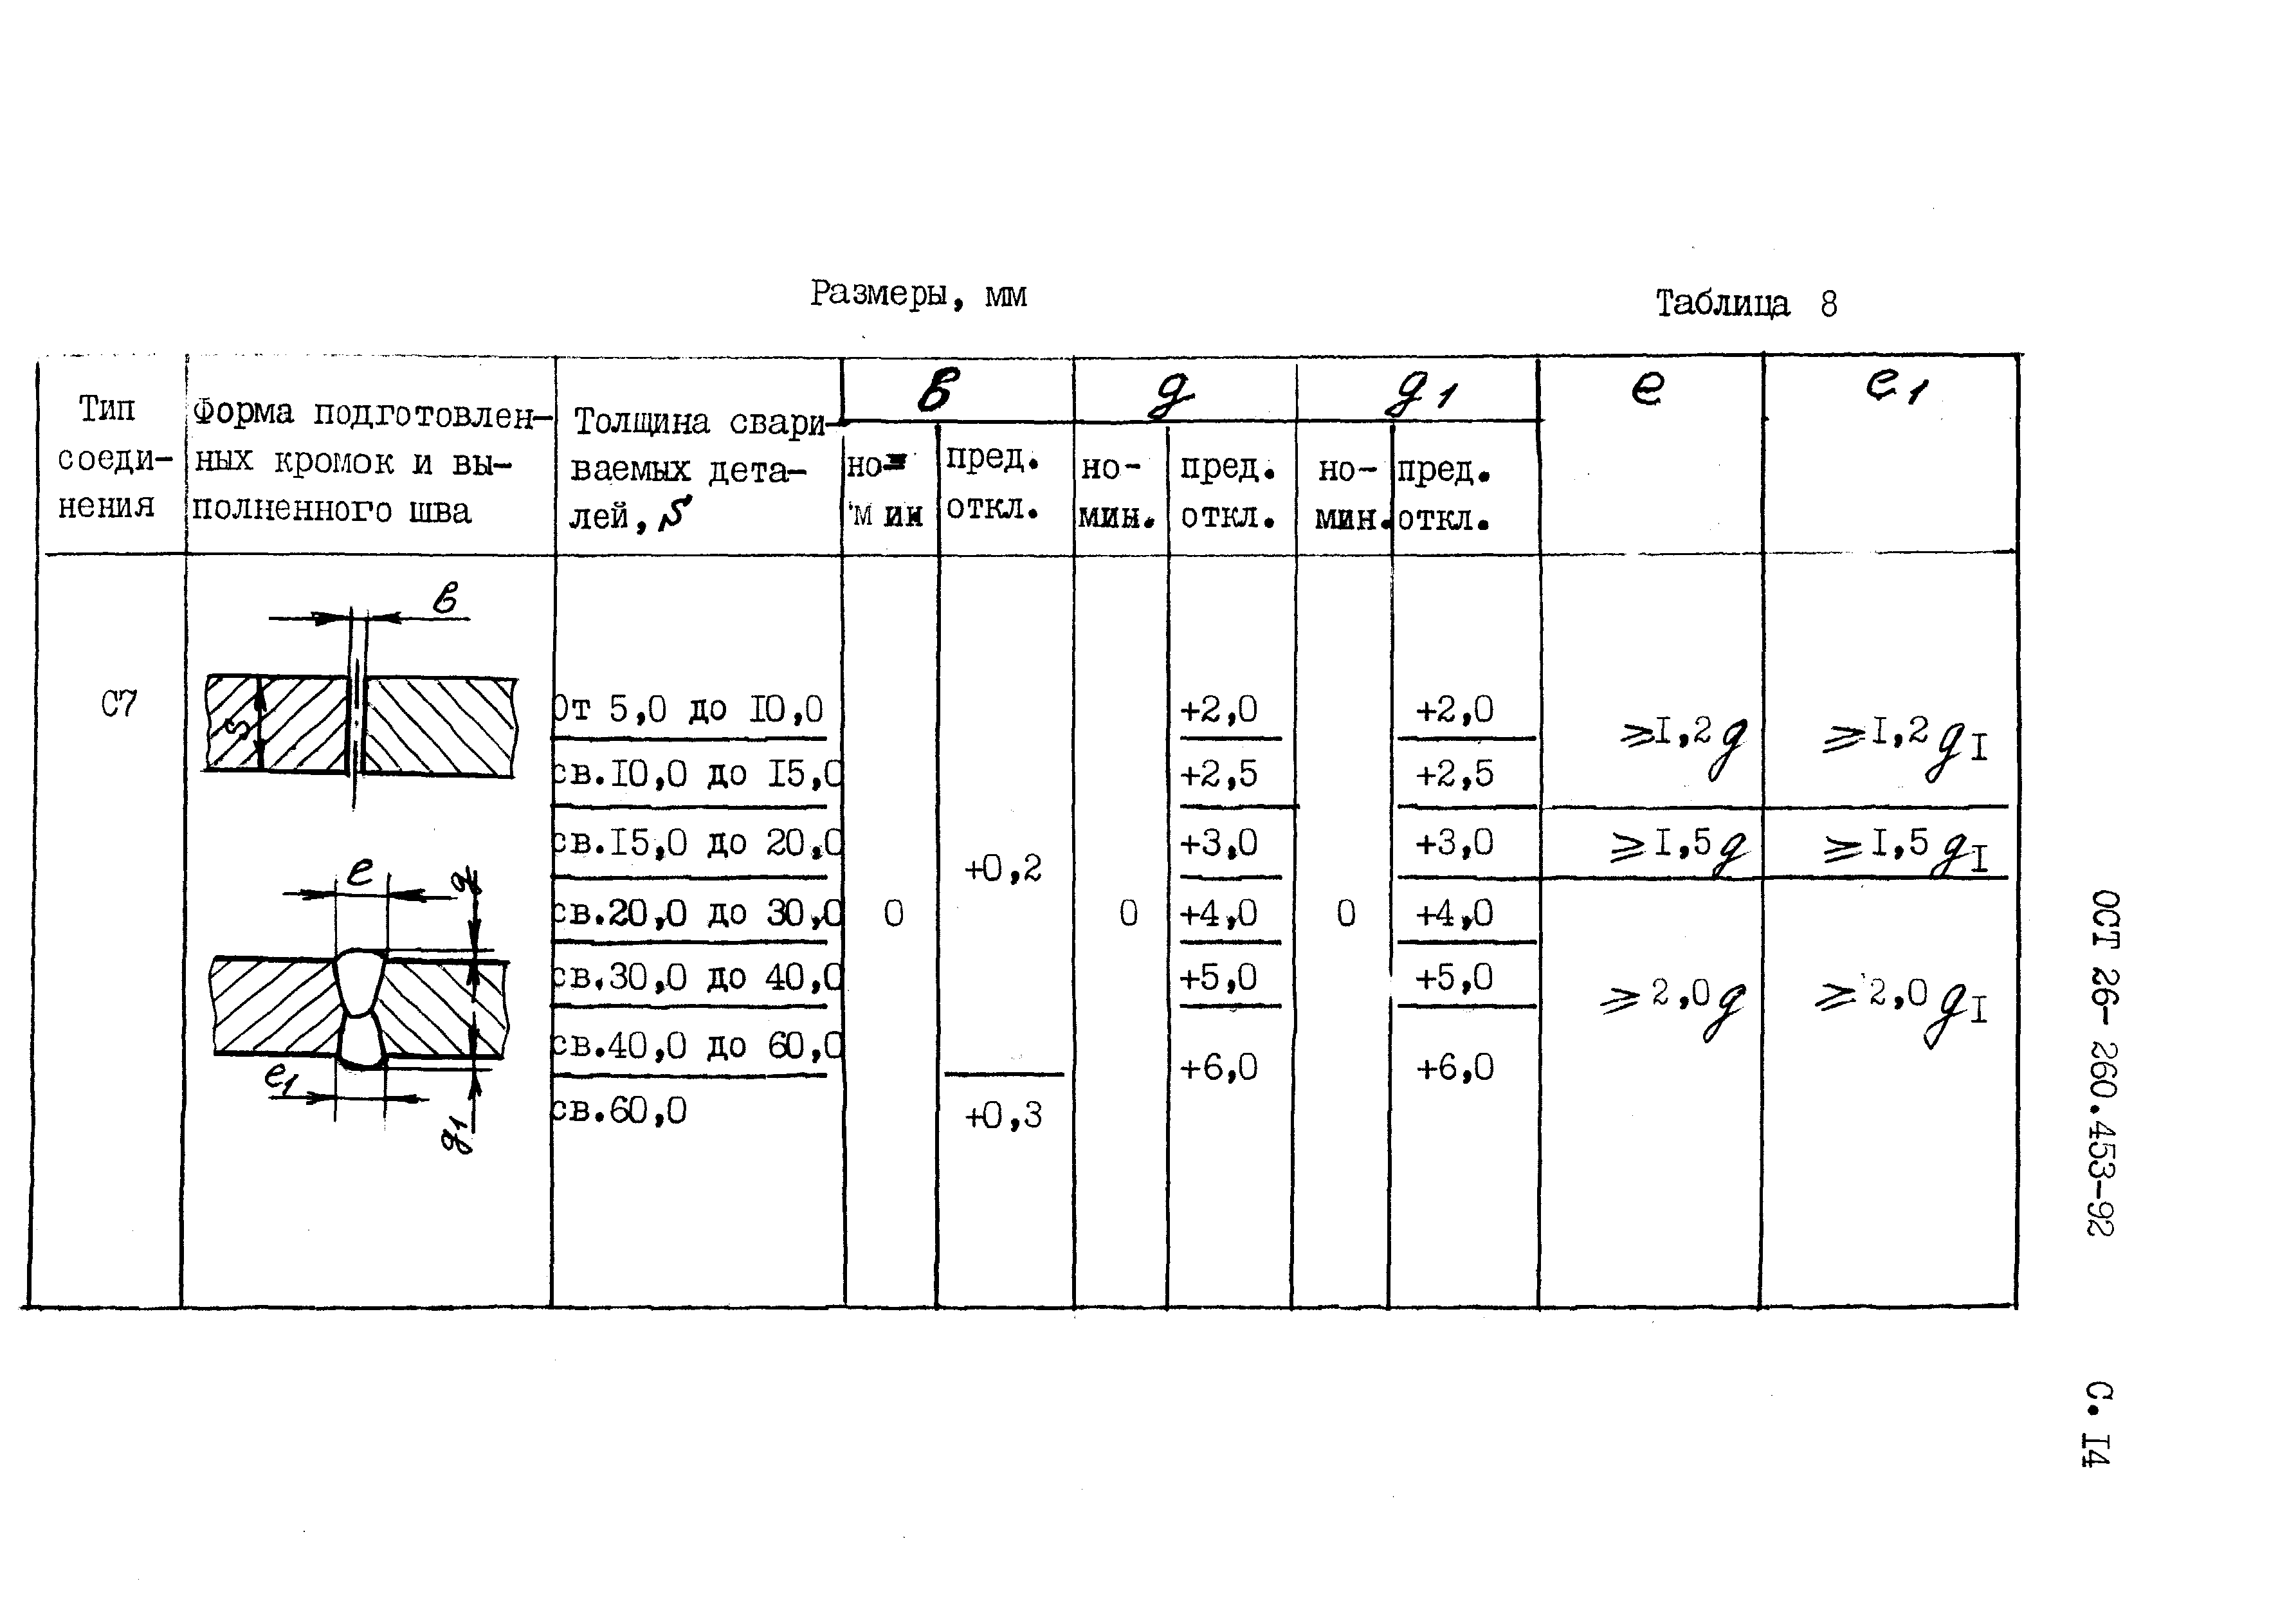 Размеры, мм
Таблица 8
Тип соеди-нения | Форма подготовлен-ных кромок и вы-полненного шва | Толщина свари-ваемых дета-лей, S | в | g | g1 | e | e1
но-мин | пред. откл. | но-мин. | пред. откл. | но-мин. | пред. откл.
С7
в
S
e
g
e1
g1
От 5,0 до I0,0 | +2,0 | +2,0 | ⩾I,2g | ⩾I,2gI
св.I0,0 до I5,0 | +2,5 | +2,5
св.I5,0 до 20,0 | +0,2 | +3,0 | +3,0 | ⩾I,5g | ⩾I,5gI
св.20,0 до 30,0 | 0 | 0 | +4,0 | 0 | +4,0
св.30,0 до 40,0 | +5,0 | +5,0 | ⩾2,0g | ⩾2,0gI
св.40,0 до 60,0 | +6,0 | +6,0
св.60,0 | +0,3
ОСТ 26-260.453-92 С. I4